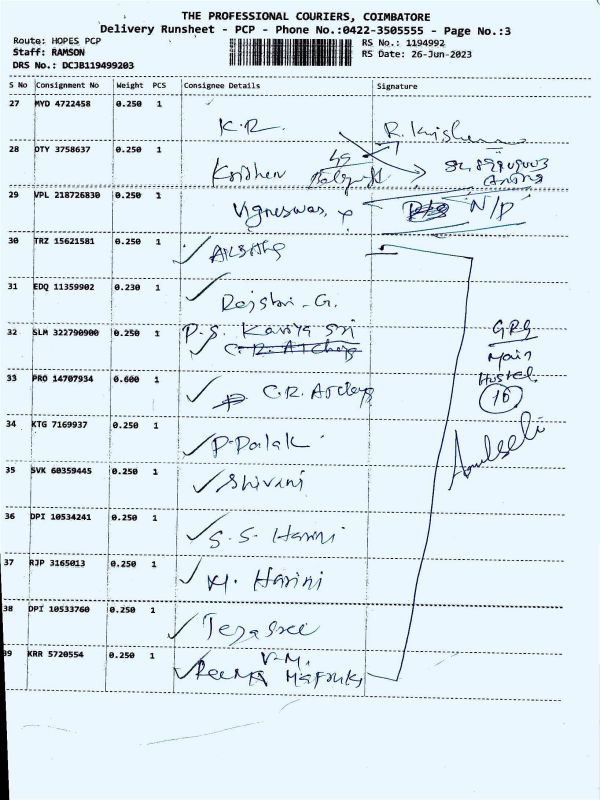 THE PROFESSIONAL COURIERS, COIMBATORE
Delivery Runsheet - PCP - Phone No.:0422-3505555 - Page No.:3
Route: HOPES PCP
Staff: RAMSON
DRS No.: DCJB119499203
RS No.: 1194992
RS Date: 26-Jun-2023
S No Consignment No Weight PCS Consignee Details Signature
27 MYD 4722458 0.250 1
K.R.
28 DTY 3758637 0.250 1
Krishen
29 VPL 218726830 0.250 1
Vigneswas N/P
30 TRZ 15621581 0.250 1
31 EDQ 11359902 0.230 1
Rajshri-G.
32 SLM 322790900 0.250 1 P.S. Kaviya Sri
33 PRO 14707934 0.600 1
C.R.
34 KTG 7169937 0.250 1
P-Palak
35 SVK 60359445 0.250 1
Shivani
36 DPI 10534241 0.250 1
S.S. Harini
37 RJP 3165013 0.250 1
M. Harini
38 DPI 10533760 0.250 1
Tejasree
39 KRR 5720554 0.250 1
V-M.
Reema
GRG
Main
Hostel
16